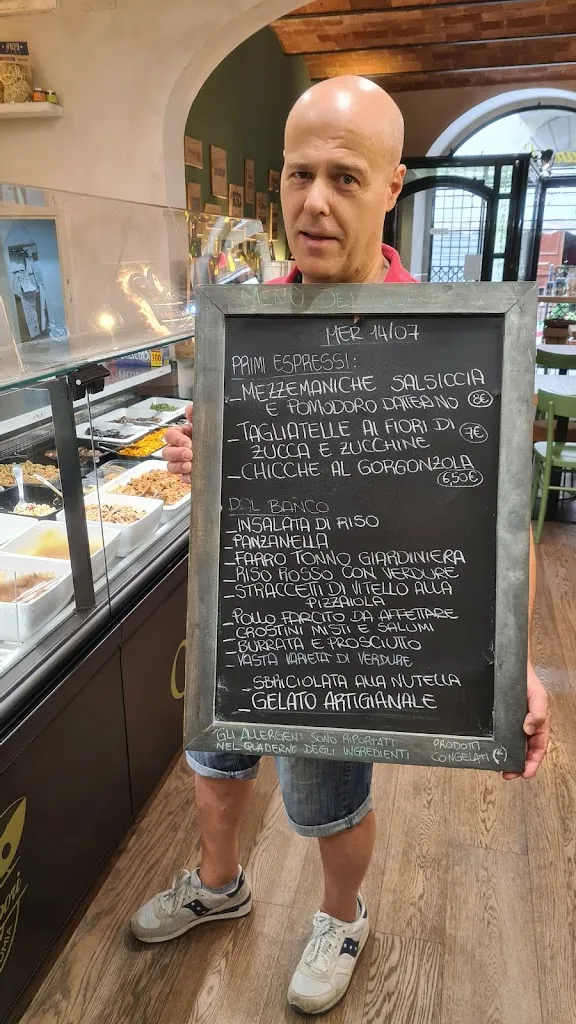 MENÙ DEL GIORNO
MER 14/07
PRIMI ESPRESSI:
- MEZZEMANICHE SALSICCIA
E POMODORO DATTERINO 8€
- TAGLIATELLE AI FIORI DI
ZUCCA E ZUCCHINE 7€
- CHICCHE AL GORGONZOLA
6,50€
DAL BANCO
- INSALATA DI RISO
- PANZANELLA
- FARRO TONNO GIARDINIERA
- RISO ROSSO CON VERDURE
- STRACCETTI DI VITELLO ALLA
PIZZAIOLA
- POLLO FARCITO DA AFFETTARE
- CROSTINI MISTI E SALUMI
- BURRATA E PROSCIUTTO
- VASTA VARIETA' DI VERDURE
- SBRICIOLATA ALLA NUTELLA
- GELATO ARTIGIANALE
GLI ALLERGENI SONO RIPORTATI
NEL QUADERNO DEGLI INGREDIENTI
PRODOTTI
CONGELATI (*)